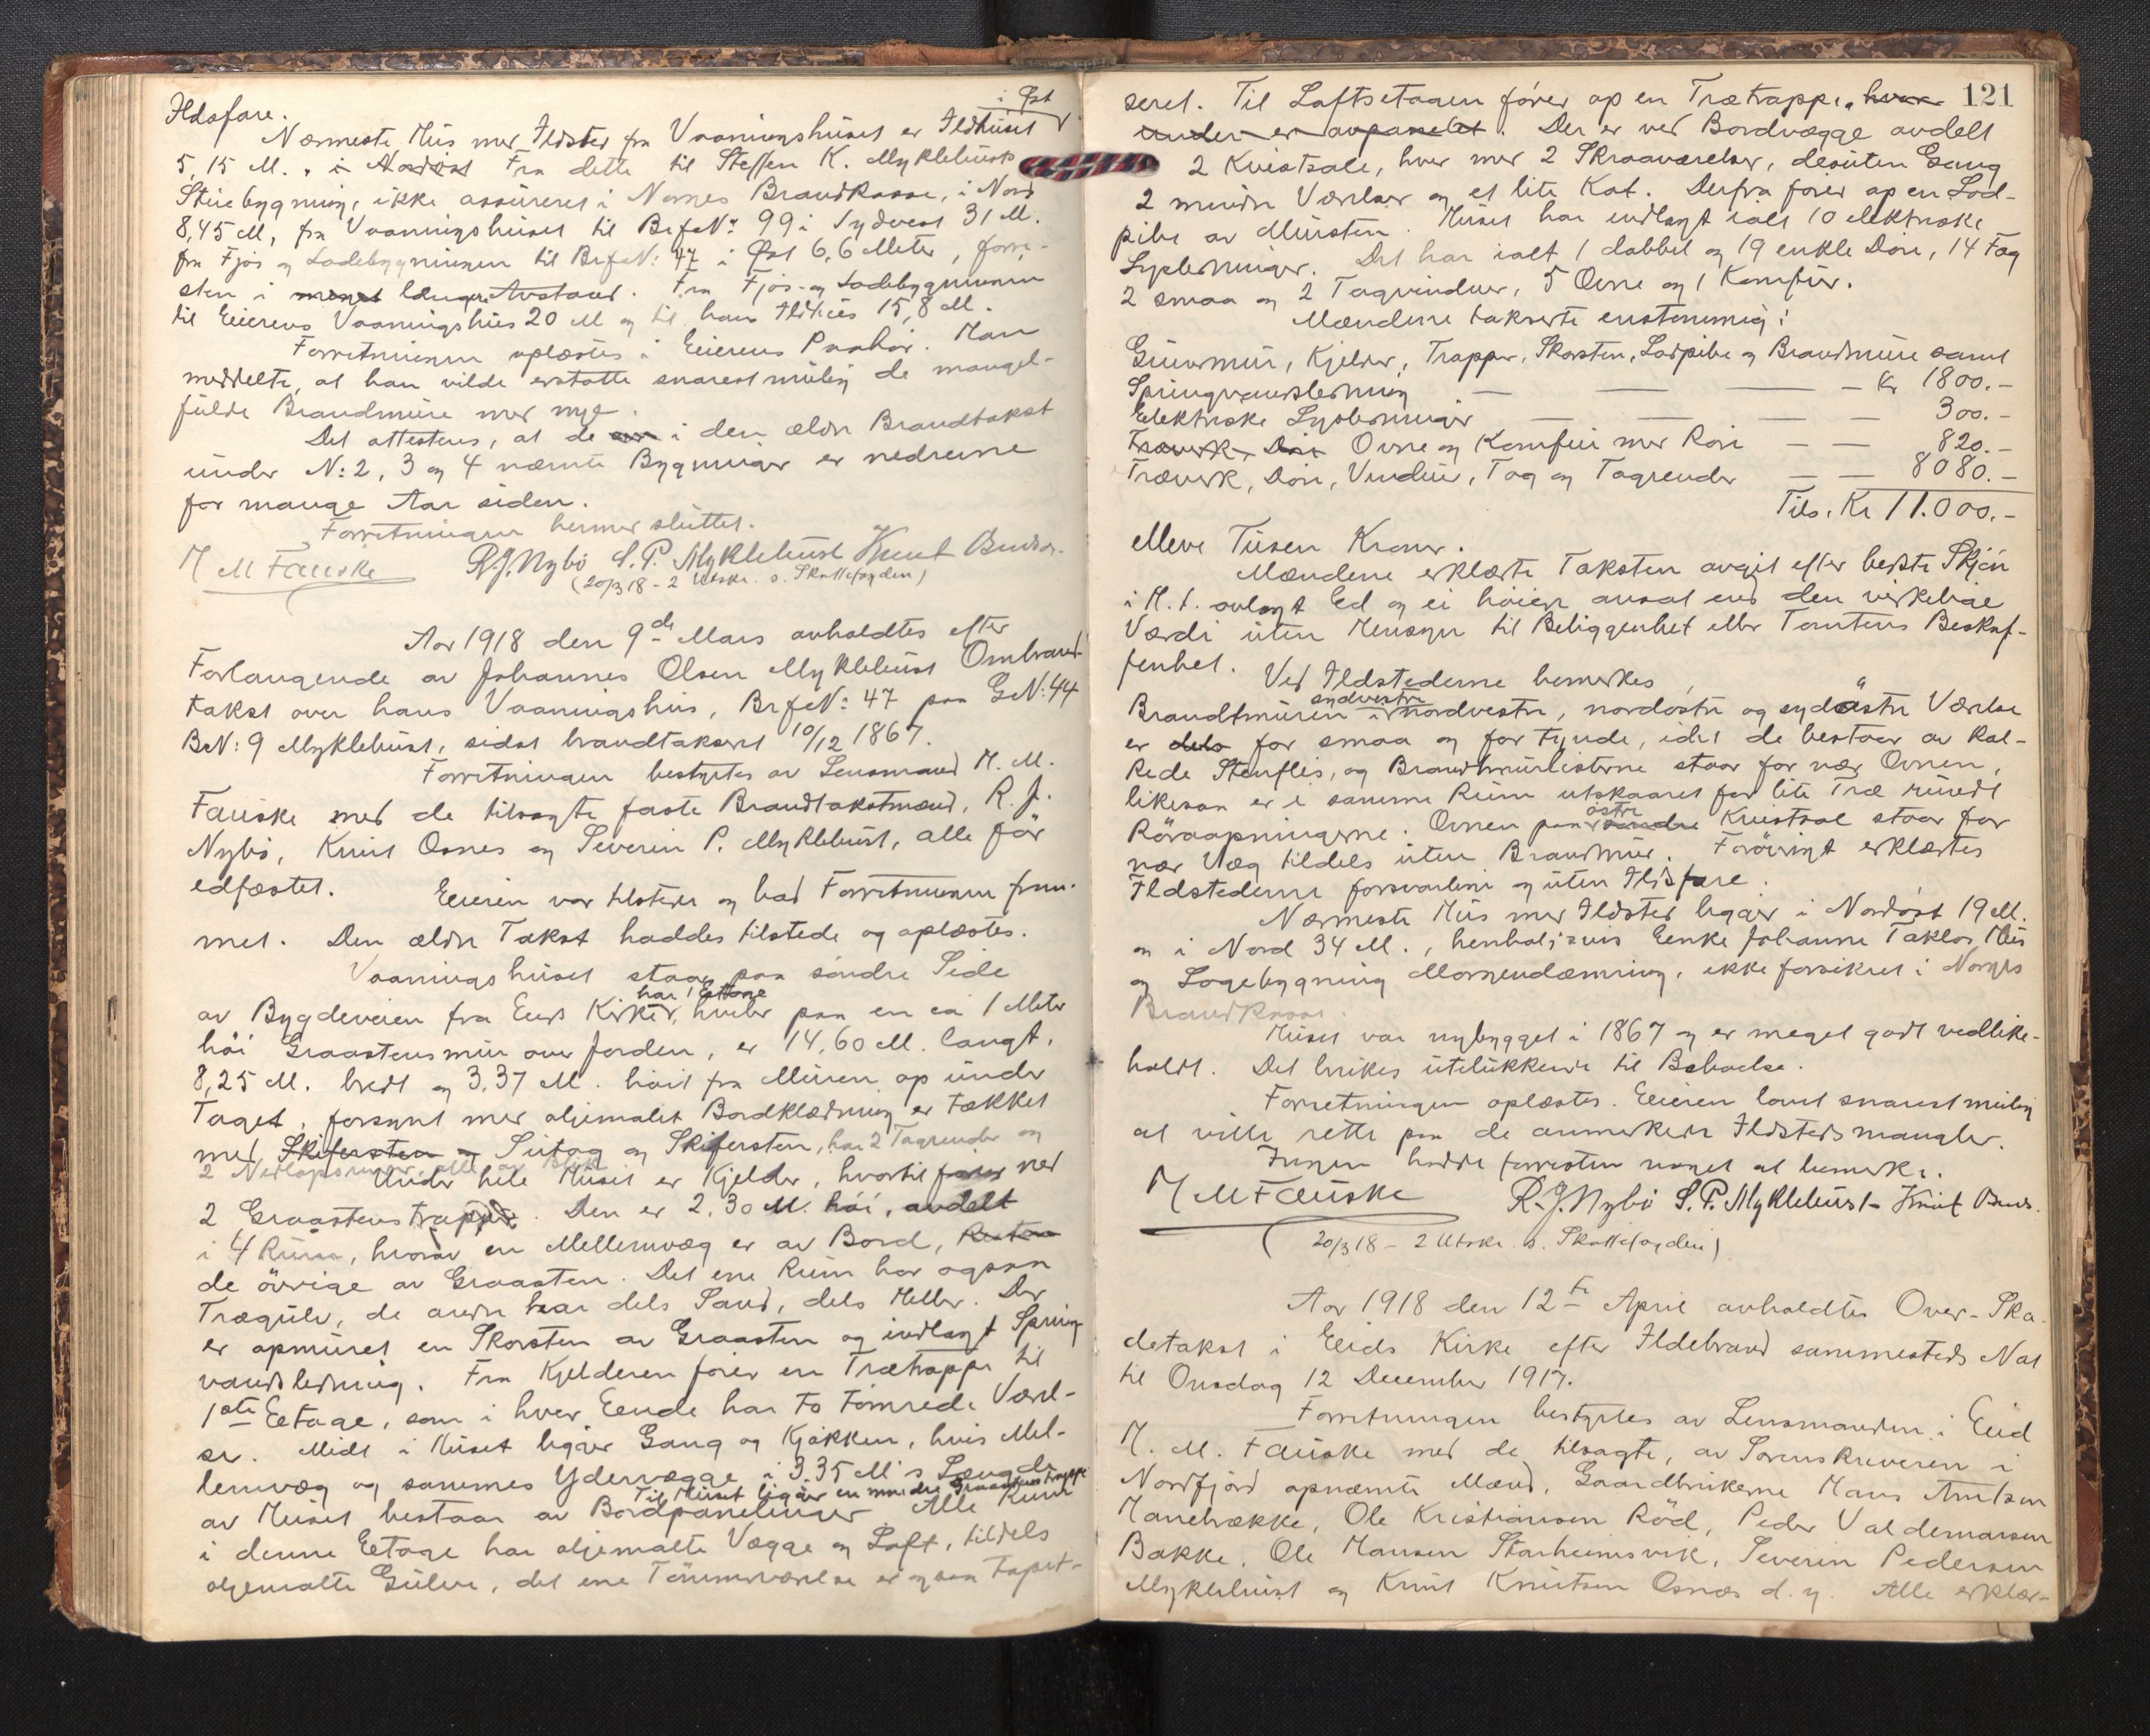 Ildsfare.
Nærmeste Hus med Ildsted fra Vaaningshuset er Ildhuset i Øst
5,15 M., i Nordöst Fra dette til Steffen K. Myklebusts
Stuebygning, ikke assureret i Norges Brandkasse, i Nord
8,45 M, fra Vaaningshuset til BrfN: 99 i Sydvest 31 M.
fra Fjös og Ladebygningen til BrfN: 47 i Øst 6,6 Meter, förre-
sten i meget længere Avstand. Fra Fjös- og Ladebygningen
til Eierens Vaaningshus 20 M og til hans Ildhus 15,8 M.
Forretningen oplæstes i Eierens Paahör. Han
meddelte, at han vilde erstatte snarest mulig de mangel-
fulde Brandmure med nye.
Det attesteres, at de i den ældre Brandtakst
under N: 2, 3 og 4 nævnte Bygninger er nedrevne
for mange Aar siden.
Forretningen hermed sluttet.
H M Fauske R.J. Nybö S.P. Myklebust Knut
(20/3 18 - 2 Utskr. s. Skattefogden)
Aar 1918 den 9de Mars avholdtes efter
Forlangende av Johannes Olsen Myklebust Ombrand-
takst over hans Vaaningshus, BrfN: 47 paa GN: 44
BN: 9 Myklebust, sidst brandtaksert 10/12 1867.
Forretningen bestyrtes av Lensmand H. M.
Fauske med de tilsagte faste Brandtakstmænd, R. J.
Nybö, Knut Osnes og Severin P. Myklebust, alle för
edfæstet.
Eieren var tilstede og bad Forretningen frem-
met. Den ældre Takst haddes tilstede og oplæstes.
Vaaningshuset staar paa söndre Side
av Bygdeveien fra Eids Kirke, har 1 Etage hviler paa en ca 1 Meter
höi Graastensmur over Jorden, er 14,60 M. langt,
8,25 M. bredt og 3,37 M. höit fra Muren op under
Taget, forsynt med oljemalet Bordklædning er tækket
med Skifersten og Sutag og Skifersten, har 2 Tagrender og
2 Nedlöpsrender, alle av Blik.
Under hele Huset er Kjelder, hvortil förer ned
2 Graastenstrapper. Den er 2,30 M. höi, avdelt
i 4 Rum, hvorav en Mellemvæg er av Bord,
de övrige av Graasten. Det ene Rum har ogsaa
Trægulv, de andre har dels Sand, dels Heller. Der
er opmuret en Skorsten av Graasten og indlagt Spring-
vandsledning. Fra Kjelderen förer en Trætrappe til
1ste Eetage, som i hver Eende har to tömrede Værel-
ser. Midt i Huset ligger Gang og Kjökken, hvis Mel-
lemvæg og sammes Ydervægge i 3.35 M's Længde
av Huset bestaar av Bordpanelinger Til Huset ligger en mindre Graastenstrappe Alle Rum
i denne Eetage har oljemalte Vægge og Loft, tildels
oljemalte Gulve, det ene Tömmerværelse er ogsaa tapet-
121
seret. Til Loftsetagen förer op en Trætrappe, hvor-
under er avpanelet. Der er ved Bordvægge avdelt
2 Kvistsale, hver med 2 Skraaværelser, desuten Gang
2 mindre Værelser og et lite Kot. Derfra förer op en Lod-
pibe av Mursten. Huset har indlagt ialt 10 elektriske
Lysledninger. Det har ialt 1 dobbel og 19 enkle Döre, 14 Fag
2 smaa og 2 Tagvinduer, 5 Ovne og 1 Komfur.
Mændene takserte enstemmig:
Grundmur, Kjelder, Trapper, Skorsten, Lodpibe og Brandmure samt
Springvandsledning — — — — Kr 1800.-
Elektriske Lysledninger — — — — 300.-
Træverk, Döre Ovne og Komfur med Rör — — 820.-
Træverk, Döre, Vinduer, Tag og Tagrender — — 8080.-
Tils. Kr 11.000.-
elleve Tusen Kroner.
Mændene erklærte Taksten avgit efter bedste Skjön
i H. t. avlagt Ed og ei höiere ansat end den virkelige
Værdi uten Hensyn til Beliggenhet eller Tomtens Beskaf-
fenhet.
Ved Ildstederne bemerkes
Brandtmuren i sydvestre nordvestre, nordöstre og sydöstre Værelse
er dels for smaa og for tynde, idet de bestaar av kal-
kede Stenflis, og Brandmurlisterne staar for nær Ovnen,
likesaa er i samme Rum utskaaret for lite Træ rundt
Röraapningerne. Ovnen paa östre söndre Kvistsal staar for
nær Væg tildels uten Brandmur. Forövrigt erklærtes
Ildstederne forsvarlige og uten Ildsfare.
Nærmeste Hus med Ildsted ligger i Nordöst 19 M.
og i Nord 34 M., henholdsvis Enke Johanne Taklos Hus
og Logebygning Morgendæmring, ikke forsikret i Norges
Brandkasse.
Huset var nybygget i 1867 og er meget godt vedlike-
holdt. Det brukes utelukkende til Beboelse.
Forretningen oplæstes. Eieren lovet snarest mulig
at ville rette paa de anmerkede Ildstedsmangler.
Ingen hadde forresten noget at bemerke.
H M Fauske R.J. Nybö S.P. Myklebust Knut
(20/3 18 - 2 Utskr. s. Skattefogden)
Aar 1918 den 12te April avholdtes Over-Ska-
detakst i Eids Kirke efter Ildebrand sammesteds Nat
til Onsdag 12 December 1917.
Forretningen bestyrtes av Lensmanden i Eid
H. M. Fauske med de tilsagte, av Sorenskriveren i
Nordfjord opnævnte Mænd, Gaardbrukerne Hans Arntsen
Hanebrække, Ole Kristiansen Röd, Peder Valdemarsen
Bakke, Ole Hansen Starheimsvik, Severin Pedersen
Myklebust og Knut Knutsen Osnæs d. y. Alle erklær-